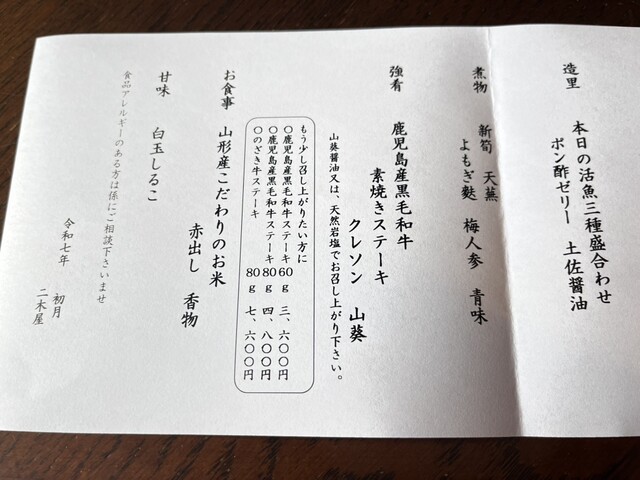 造里
本日の活魚三種盛合わせ
ポン酢ゼリー 土佐醤油
煮物
新筍 天蕪
よもぎ麩 梅人参 青味
強肴
鹿児島産黒毛和牛
素焼きステーキ
クレソン 山葵
山葵醤油又は、天然岩塩でお召し上がり下さい。
もう少し召し上がりたい方に
〇鹿児島産黒毛和牛ステーキ60g 三、六〇〇円
〇鹿児島産黒毛和牛ステーキ80g 四、八〇〇円
〇のざき牛ステーキ 80g 七、六〇〇円
お食事
山形産こだわりのお米
赤出し 香物
甘味
白玉しるこ
食品アレルギーのある方は係にご相談下さいませ
令和七年 初月
二木屋